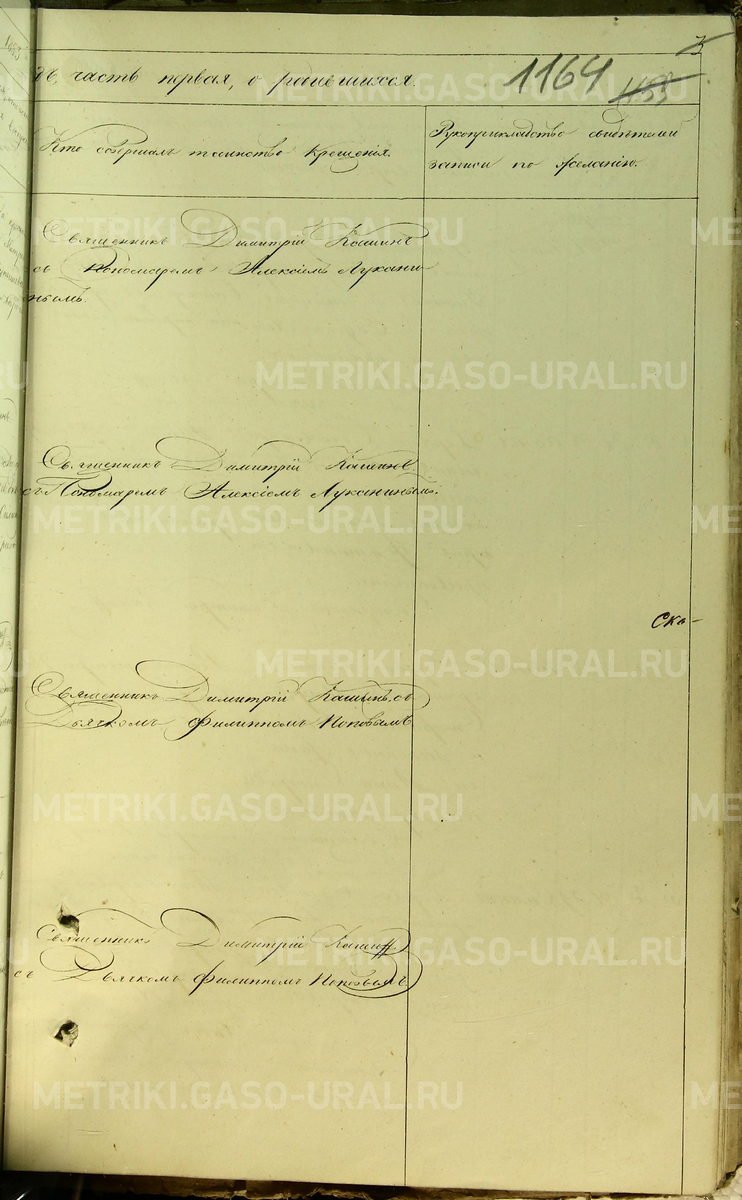 3
дъ, часть первая, о родившихся. 1164 1153
Кто совершалъ таинство крещенія.
Рукоприкладство свидѣтелей
записи по желанію.
Священникъ Димитрій Кашинъ
съ Пономаремъ Алексіемъ Лукани-
нымъ.
Священникъ Димитрій Кашинъ
съ Пономаремъ Алексіемъ Луканинымъ.
Ско-
Священникъ Димитрій Кашинъ, съ
Дьячкомъ Филиппомъ Поповымъ
Священникъ Димитрій Кашинъ
съ Дьячкомъ Филиппомъ Поповымъ
METRIKI.GASO-URAL.RU